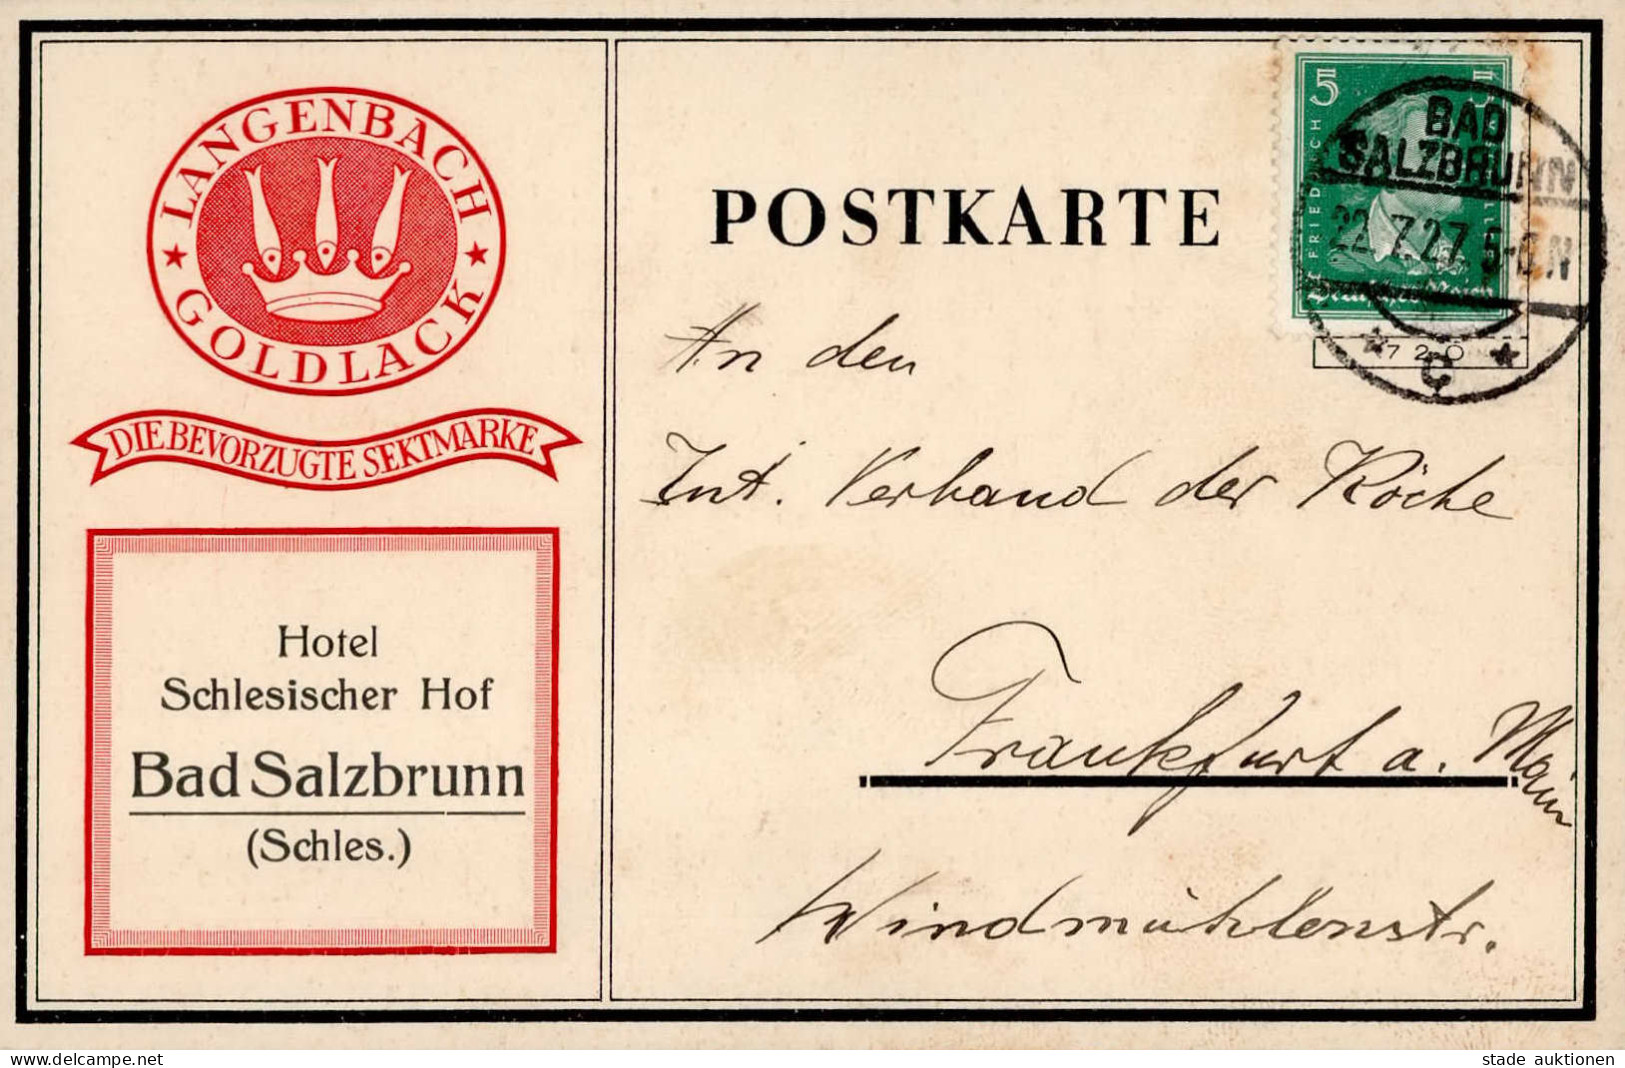 LANGENBACH
GOLDLACK
DIE BEVORZUGTE SEKTMARKE
Hotel
Schlesischer Hof
Bad Salzbrunn
(Schles.)
POSTKARTE
5 5
FRIEDRICH
Deutsches Reich
BAD
SALZBRUNN
22.7.27. 5-6.N
C
720
An den
Int. Verband der Köche
Frankfurt a. Main
Windmühlenstr.
www.delcampe.net
stade auktionen